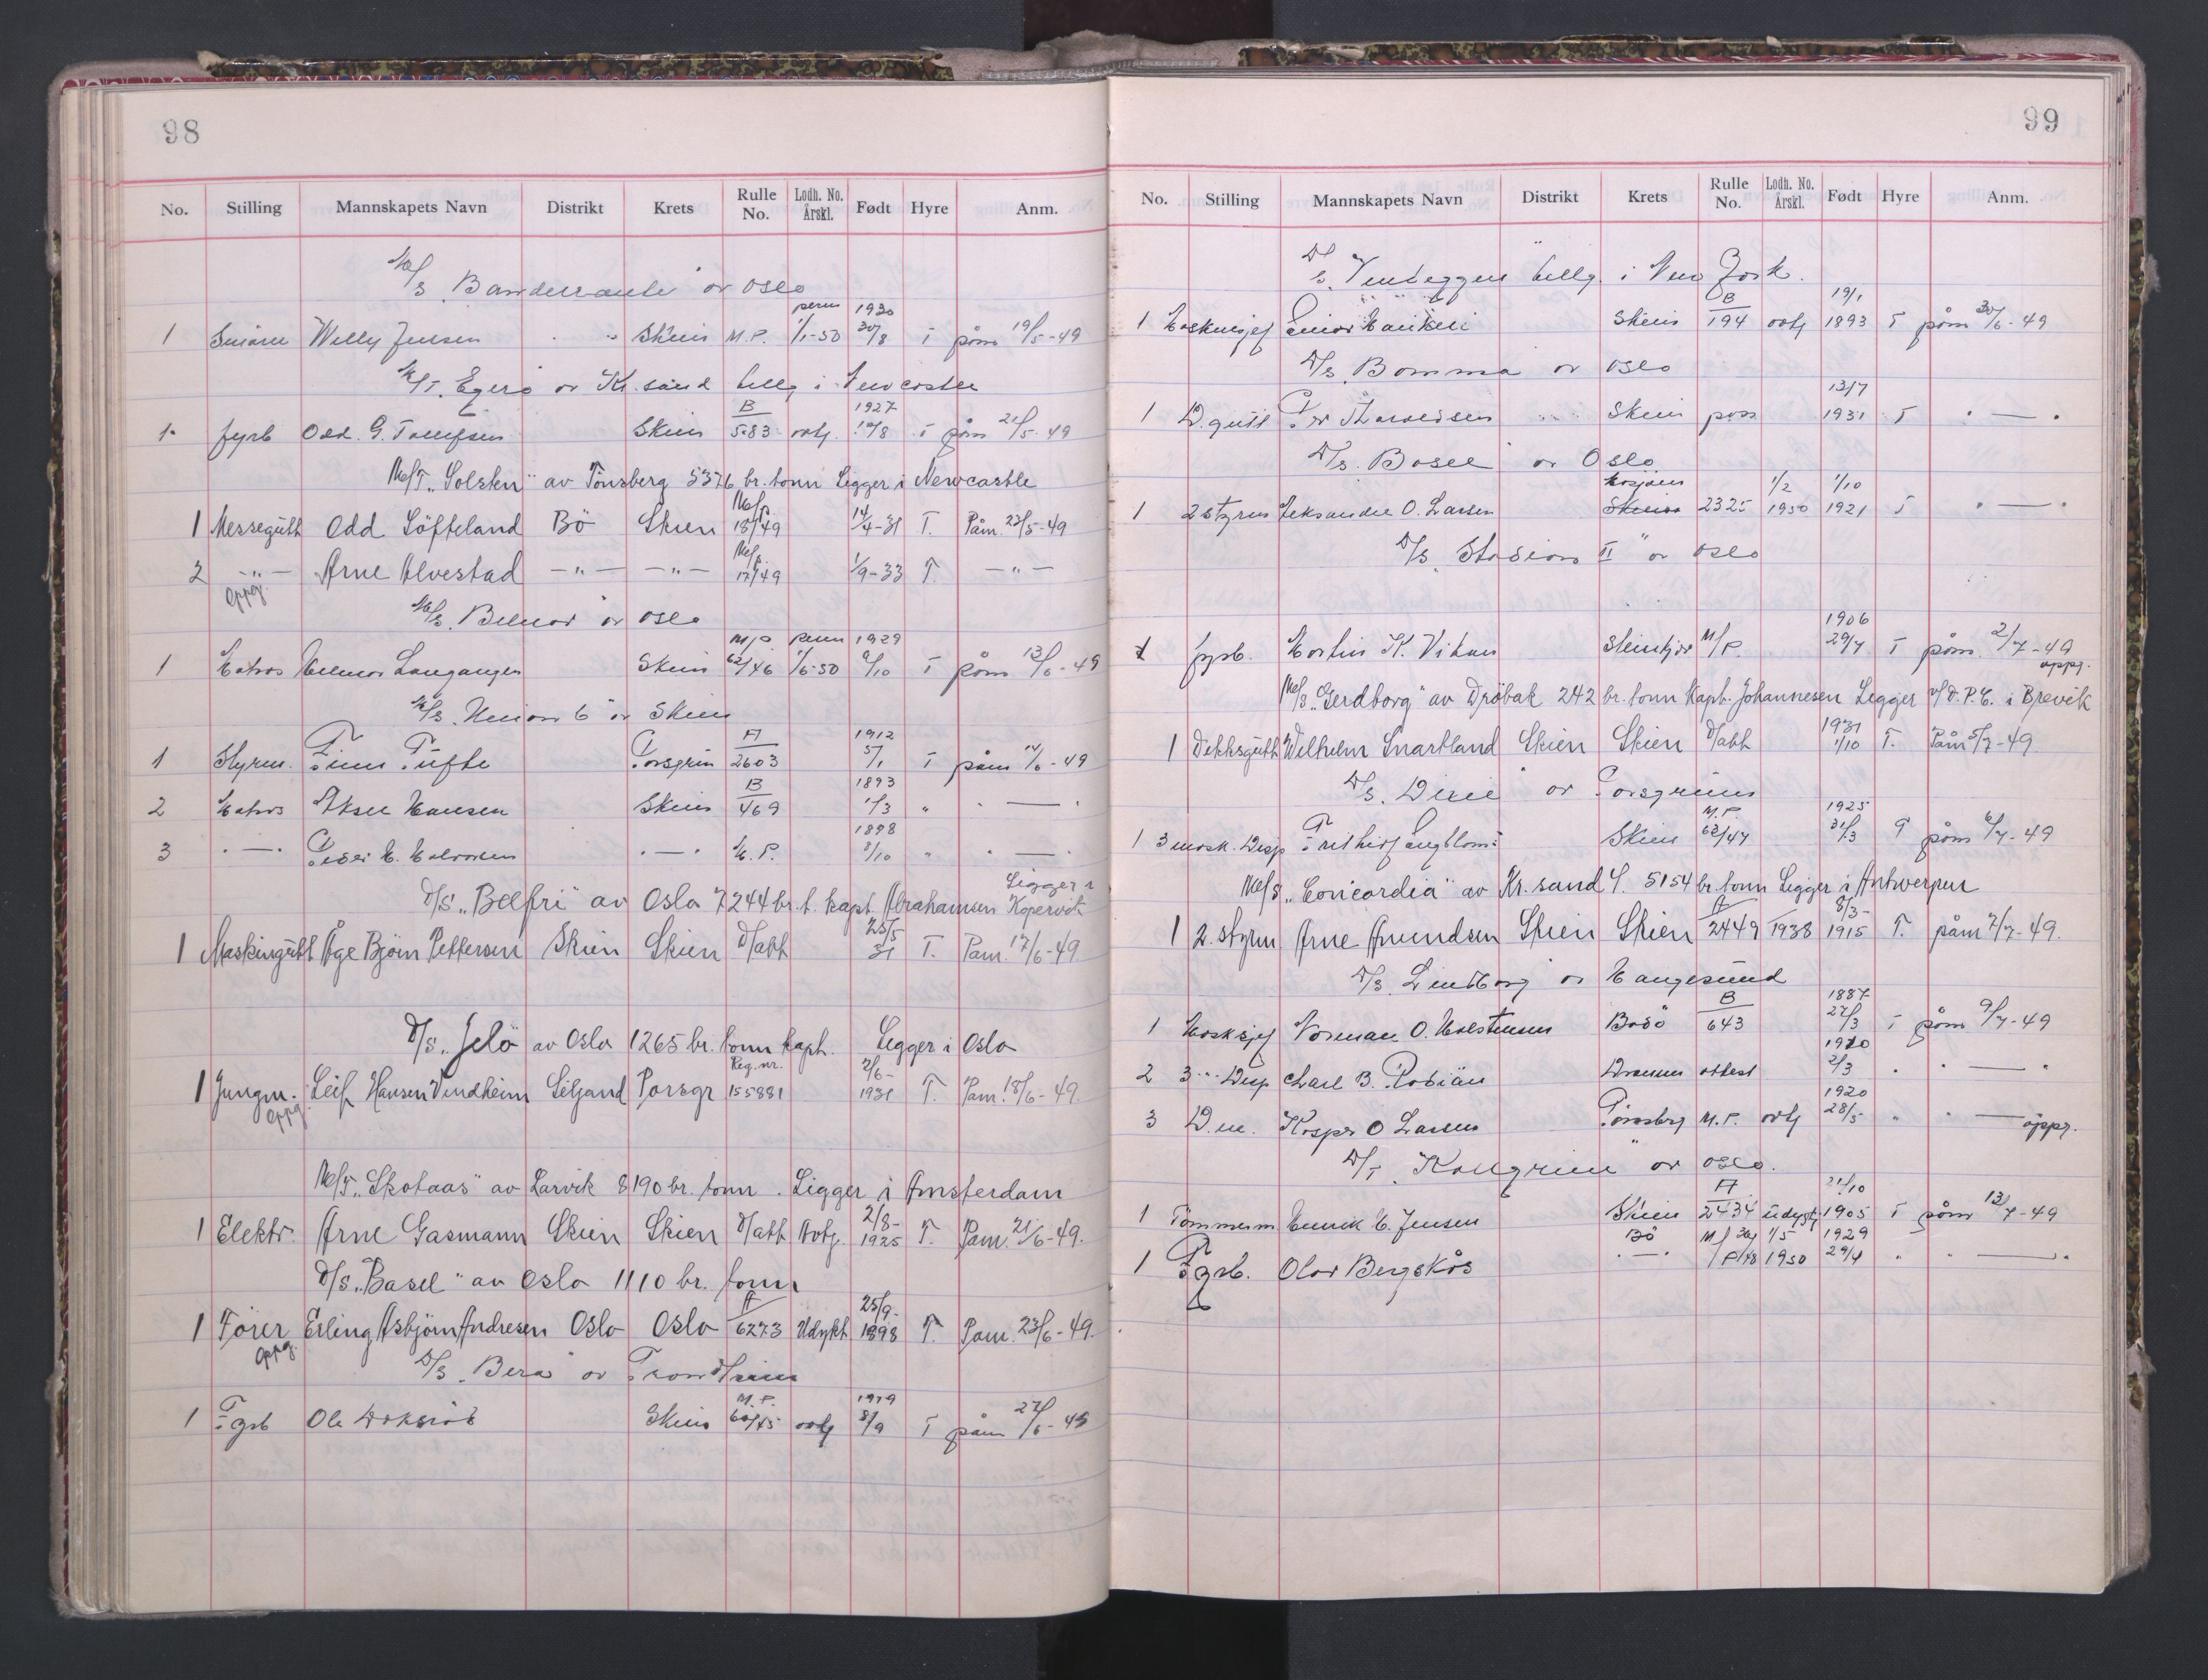 98
No. Stilling Mannskapets Navn Distrikt Krets Rulle No. Lodh. No. Årskl. Født Hyre Anm.
M/S "Banderante" av Oslo
1 Smörer Willy Jensen Skien M.P. perm 1/1-50 1930 30/8 T påm 19/5-49
M/T "Egerö" av Kr.sand bellg i Newcastle
1 fyrb Odd. G. Tollefsen Skien B 583 1927 10/8 T påm 21/5-49
M/T "Solsten" av Tönsberg 5376 br. tonn Ligger i Newcastle
1 Messegutt Odd Löfteland Bö Skien 18/49 14/4-31 T. Påm. 23/5-49
2 -"- Arne Alvestad -"- -"- 17/49 1/9-33 T. -"-
Oppg.
M/S "Belnor" av Oslo
1 Matros Langangen Skien M/P 62/46 perm 1/6-50 1929 9/10 T påm 13/6-49
M/S "Union 6" av Skien
1 Styrm. Finn Tufte Porsgrun A 2603 1912 5/1 T påm 14/6-49
2 Matros Aksel Hansen Skien B 469 1893 1/3 " -
3 -"- Peder M. Halvorsen -"- M.P. 1898 8/10 " -
D/S "Belfri" av Oslo 7244 br. t. kapt. Abrahamsen Ligger i Kopervik
1 Maskingutt Åge Björn Pettersen Skien Skien D/att 25/5 31 T. Påm. 17/6-49
D/S "Jelö" av Oslo 1265 br. tonn kapt. Ligger i Oslo
1 Jungm. Leif Hansen Vindheim Siljand Porsgr Reg. nr. 155881 2/6-1931 T. Påm. 18/6-49.
Oppg.
M/T "Skotaas" av Larvik 8190 br. tonn. Ligger i Amsterdam
1 Elektr. Arne Gasmann Skien Skien D/att Avtj. 2/8-1925 T. Påm. 21/6-49.
D/S "Basel" av Oslo 1110 br. tonn
1 Förer Erling Asbjörn Andresen Oslo Oslo A 6273 Udykt 25/9-1898 T. Påm. 23/6-49.
Oppg.
D/S "Bera" av Trondheim
1 Fyrb Ole Skien M.P. 60/45 avtj 8/9 T påm 27/6-49
99
No. Stilling Mannskapets Navn Distrikt Krets Rulle No. Lodh. No. Årskl. Født Hyre Anm.
D/S "Vindeggen" bellg. i New York.
1 Maskinsjef Einar Skien B 194 avtj 19/1 1893 T påm 30/6-49
D/S "Bomma" av Oslo
1 D.gutt Per Thorvaldsen Skien pass 13/7 1931 T -
D/S "Basel" av Oslo
1 2 styrm Aleksander O. Larsen Skien 2325 1/2 1950 1/10 1921 T -
D/S "Stadion II" av Oslo
1 fyrb. Martin K. Vikan Steinkjær M/P. 1906 29/7 T påm. 2/7-49
oppg.
M/S "Gerdborg" av Dröbak 242 br. tonn Kapt. Johannesen Ligger v/ D.P.C. i Brevik
1 Dekksgutt Wilhelm Snartland Skien Skien D/att 1931 1/10 T. Påm 5/7-49
D/S "Dixie" av Porsgrunn
1 3 mask. Disp Frithjof Engblom Skien M.P. 62/47 1925 31/3 T påm 6/7-49
M/S "Concordia" av Kr.sand S. 5154 br. tonn Ligger i Antwerpen
1 2. styrm Arne Amundsen Skien Skien A 2449 1938 8/3-1915 T. påm 7/7-49.
D/S "Lindborg" av Haugesund
1 Masksjef Norman O. Holstensen Bodö B 643 1887 27/3 T påm 9/7-49
2 3 -"- Disp Charl B. Robiän Drammen attest 1920 2/3 " -
3 D.m. Kasper O Larsen Tönsberg M.P. avtj 1920 28/5 " -
oppg.
D/T "Kollgrim" av Oslo.
1 Tömmerm Henrik M. Jensen Skien A 2434 udygtj 21/10 1905 T påm 13/7-49
1 Fyrb. Olav Bergskås Bö M/P 1/5 1950 1929 29/4 " -